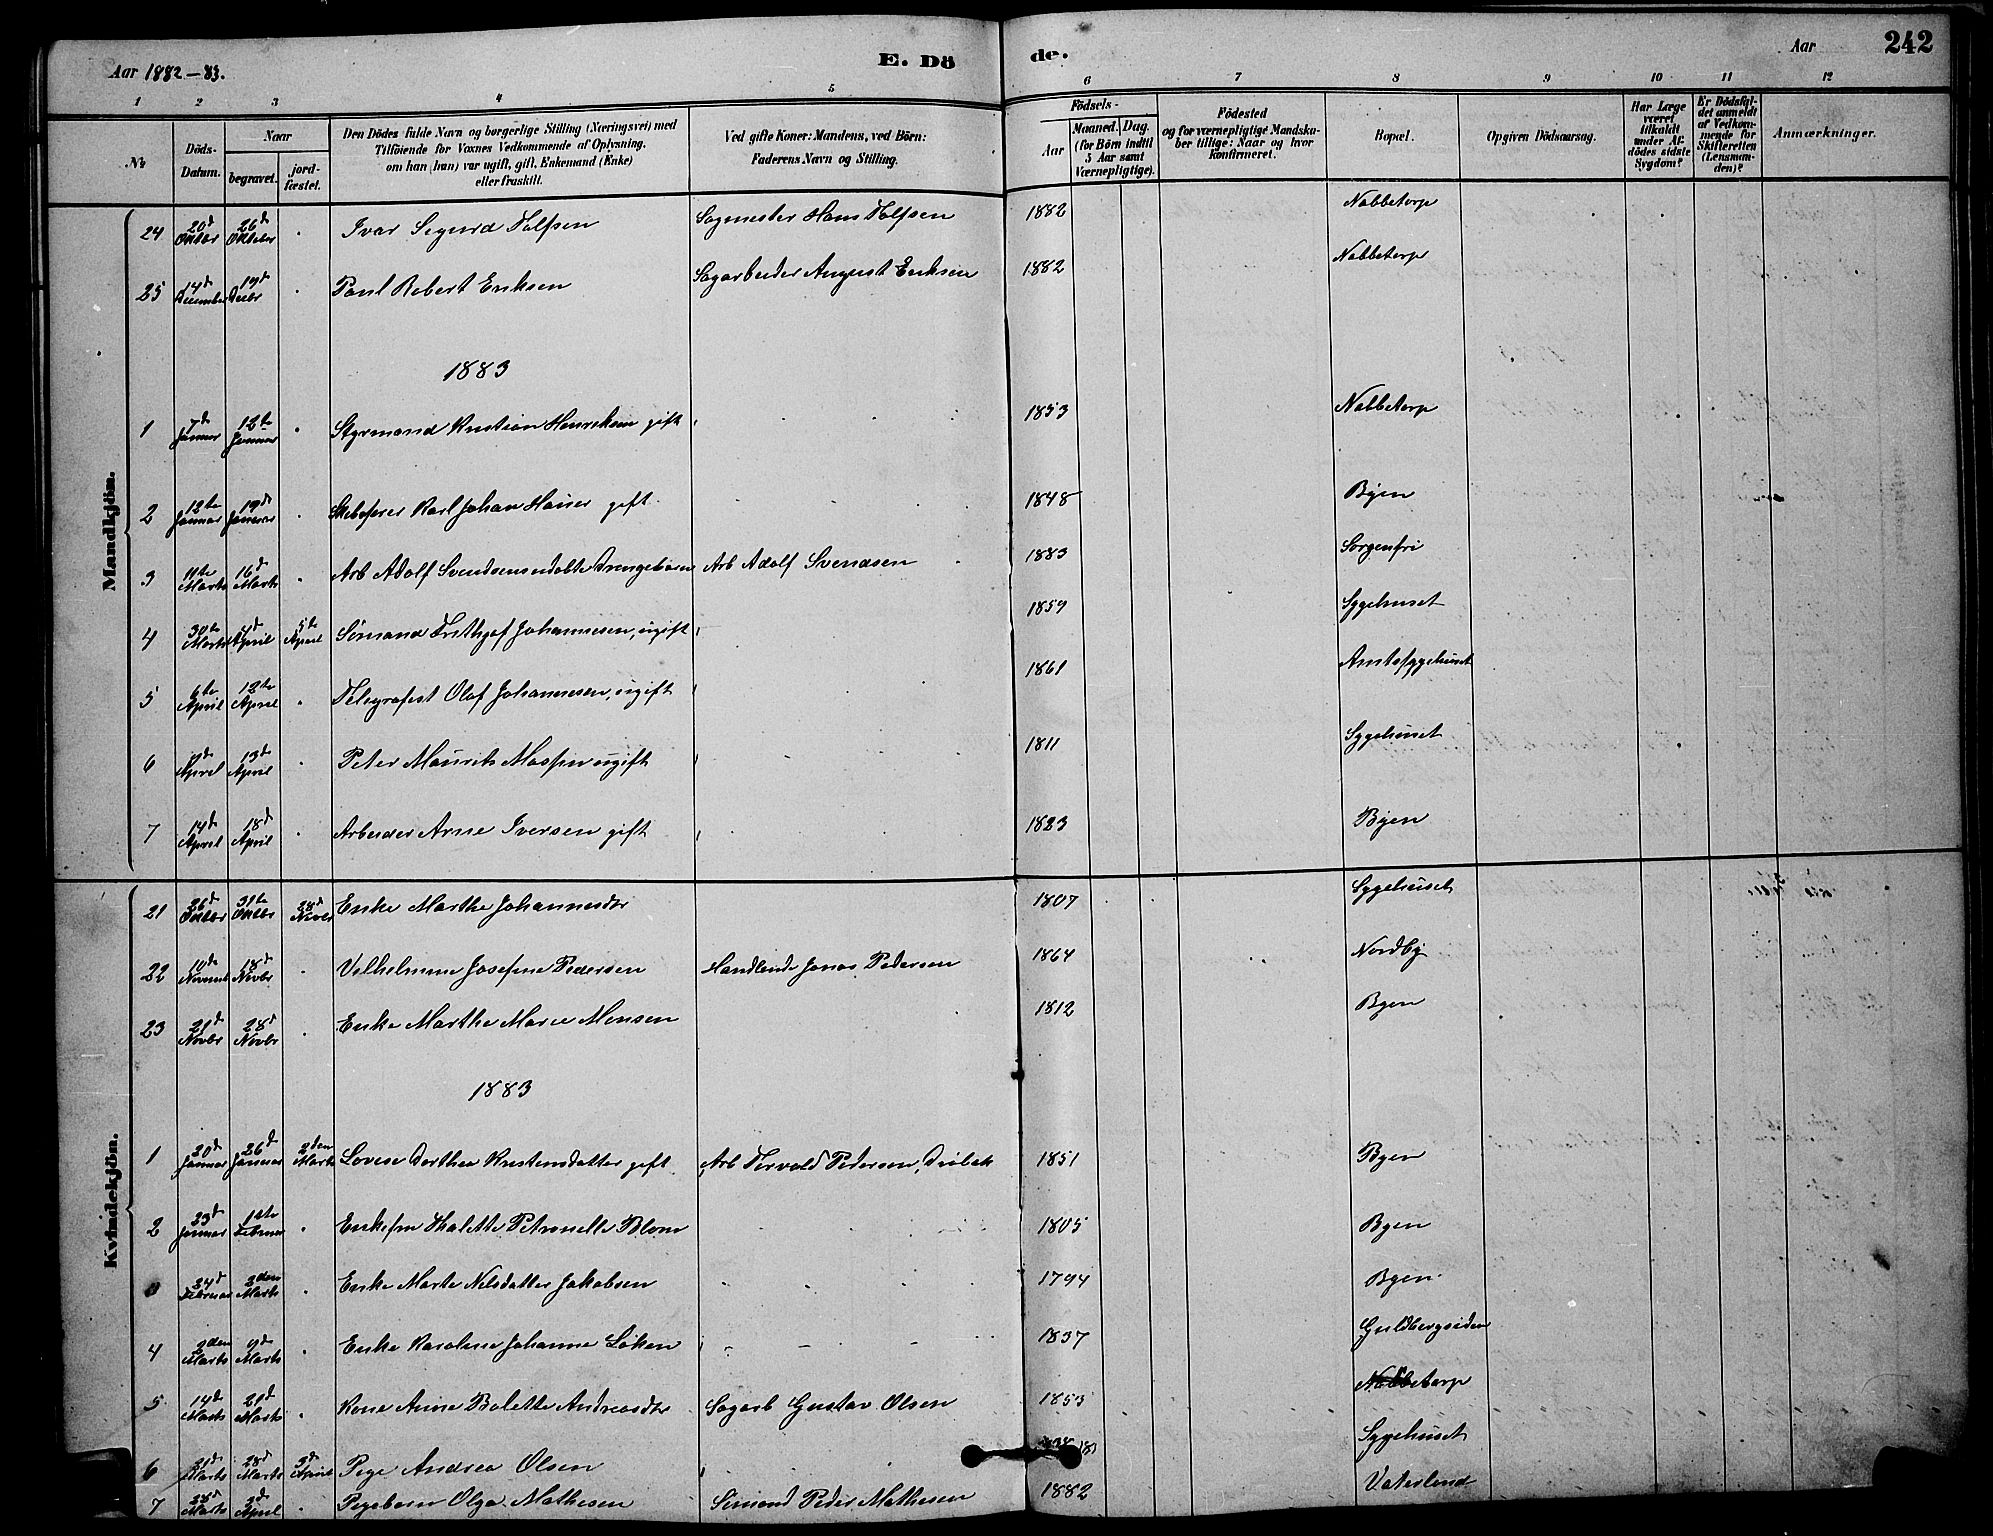 Aar 1882-83.
E. Dö
de.
Aar
242
1 2 3 4 5 6 7 8 9 10 11 12
No
Döds-Datum.
Naar
begravet.
jord-fæstet.
Den Dödes fulde Navn og borgerlige Stilling (Næringsvei) med
Tilföiende for Voxnes Vedkommende af Oplysning,
om han (hun) var ugift, gift, Enkemand (Enke)
eller fraskilt.
Ved gifte Koner: Mandens, ved Börn:
Faderens Navn og Stilling.
Födsels-
Aar
Maaned. Dag.
(for Börn indtil
5 Aar samt
Værnepligtige).
Födested
og for værnepligtige Mandska-
ber tillige: Naar og hvor
konfirmeret.
Bopæl.
Opgiven Dödsaarsag.
Har Læge
været
tilkaldt
under Af-
dödes sidste
Sygdom?
Er Dödsfal-
det anmeldt
af Vedkom-
mende for
Skifteretten
(Lensman-
den)?
Anmærkninger.
Mandkjön.
24 20d Oktbr 26d Oktober Ivar Sigurd Sagmester Hans 1882 Nabbetorp
25 14d December 19d Decbr Paul Robert Eriksen Sagarbeider August Eriksen 1882 Nabbetorp
1883
1 7d Januar 12te Januar Styrmand Kristian Henriksen gift 1853 Nabbetorp
2 12te Januar 19d Januar Karl Johan gift 1848 Byen
3 11te Marts 16d Marts Arb Adolf Svendsens udöbte Drengebarn Arb Adolf Svendsen 1883 Sorgenfri
4 30te Marts April 5te April Sömand Frithjof Johannesen, ugift 1859 Sygehuset
5 6te April 12te April Telegrafist Olaf Johannesen, ugift 1861 Amtssygehuset
6 9d April 13d April Peter Maurits ugift 1811 Sygehuset
7 14d April 18d April Arbeider Arne Iversen gift 1823 Byen
Kvindekjön.
21 26d Oktbr 31te Oktbr 28d Novbr Enke Marthe Johannesdtr 1807 Sygehuset
22 10d Novemb 18d Novbr Vilhelmine Josefine Pedersen Handlende Jonas Pedersen 1864 Nordby
23 21d Novbr 28d Novbr Enke Marthe Marie Monsen 1812 Byen
1883
1 20d Januar 26d Januar 2den Marts Lovise Dorthea Kristensdatter gift Arb Torvald Pedersen, Dröbak 1851 Byen
2 23d Januar 1ste Februar Enkefru Halette Petronelle Blom 1805 Byen
24d Februar 2den Marts Enke Marte Nilsdatter Jakobsen 1794 Byen
4 2den Marts 9d Marts Enke Karoline Johanne Löken 1837 Guldbergsiden
5 14d Marts 21d Marts Kone Anne Bolette Andreasdtr Sagarb Gustav Olsen 1853 Nabbetorp
6 21d Marts 28d Marts 3d April Pige Andrea Olsen Sygehuset
7 28d Marts 2d April Pigebarn Olga Mathesen Sömand Peder Mathesen 1882 Vaterland